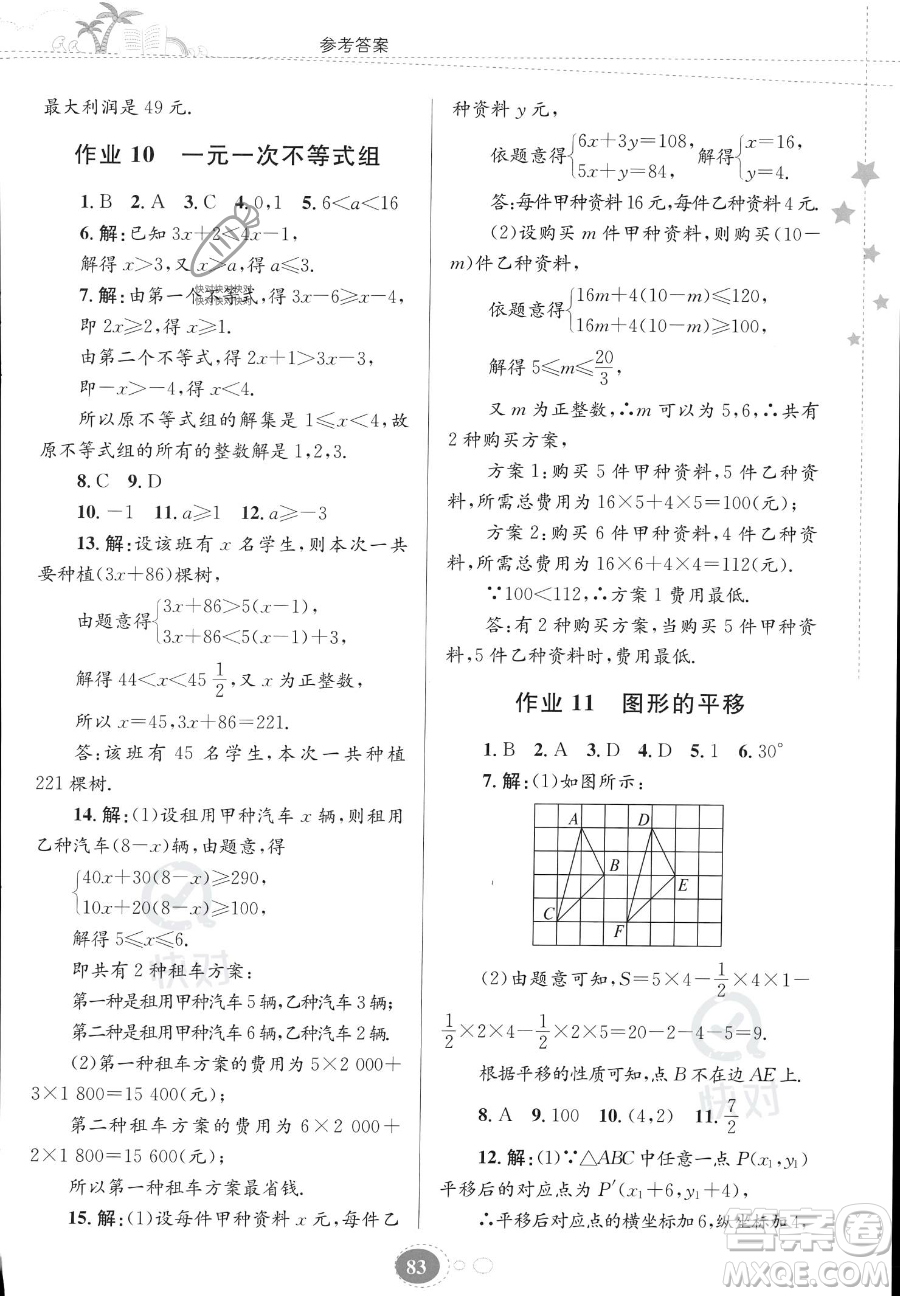 参考答案
最大利润是 49 元.
作业 10 一元一次不等式组
1. B 2. A 3. C 4. 0,1 5. 6<a<16
6. 解:已知 3x+2<4x-1,
解得 x>3,又 x>a,得 a≤3.
7. 解:由第一个不等式,得 3x-6≥x-4,
即 2x≥2,得 x≥1.
由第二个不等式,得 2x+1>3x-3,
即-x>-4,得 x<4.
所以原不等式组的解集是 1≤x<4,故
原不等式组的所有的整数解是 1,2,3.
8. C 9. D
10. -1 11. a≥1 12. a≥-3
13. 解:设该班有 x 名学生,则本次一共
要种植(3x+86)棵树,
由题意得{3x+86>5(x-1),
3x+86<5(x-1)+3,
解得 44<x<45 1/2,又 x 为正整数,
所以 x=45,3x+86=221.
答:该班有 45 名学生,本次一共种植
221 棵树.
14. 解:(1)设租用甲种汽车 x 辆,则租用
乙种汽车(8-x)辆,由题意,得
{40x+30(8-x)≥290,
10x+20(8-x)≥100,
解得 5≤x≤6.
即共有 2 种租车方案:
第一种是租用甲种汽车 5 辆,乙种汽车 3 辆;
第二种是租用甲种汽车 6 辆,乙种汽车 2 辆.
(2)第一种租车方案的费用为 5×2 000+
3×1 800=15 400(元);
第二种租车方案的费用为 6×2 000+
2×1 800=15 600(元).
所以第一种租车方案最省钱.
15. 解:(1)设每件甲种资料 x 元,每件乙
种资料 y 元,
依题意得{6x+3y=108, 解得{x=16,
5x+y=84, y=4.
答:每件甲种资料 16 元,每件乙种资料 4 元.
(2)设购买 m 件甲种资料,则购买(10-
m)件乙种资料,
依题意得{16m+4(10-m)≤120,
16m+4(10-m)≥100,
解得 5≤m≤20/3,
又 m 为正整数,∴m 可以为 5,6,∴共有
2 种购买方案,
方案 1:购买 5 件甲种资料,5 件乙种资
料,所需总费用为 16×5+4×5=100(元);
方案 2:购买 6 件甲种资料,4 件乙种资
料,所需总费用为 16×6+4×4=112(元).
∵100<112,∴方案 1 费用最低.
答:有 2 种购买方案,当购买 5 件甲种资
料,5 件乙种资料时,费用最低.
作业 11 图形的平移
1. B 2. A 3. D 4. D 5. 1 6. 30°
7. 解:(1)如图所示:
A D
B E
C F
(2)由题意可知,S=5×4-1/2×4×1-
1/2×2×4-1/2×2×5=20-2-4-5=9.
根据平移的性质可知,点 B 不在边 AE 上.
8. A 9. 100 10. (4,2) 11. 7/2
12. 解:(1)∵△ABC 中任意一点 P(x₁,y₁)
平移后的对应点为 P′(x₁+6,y₁+4),
∴平移后对应点的横坐标加 6,纵坐标加 4,
83
快对快对快对
快对快对快对
快对
快对
答案圈
MXQE.COM